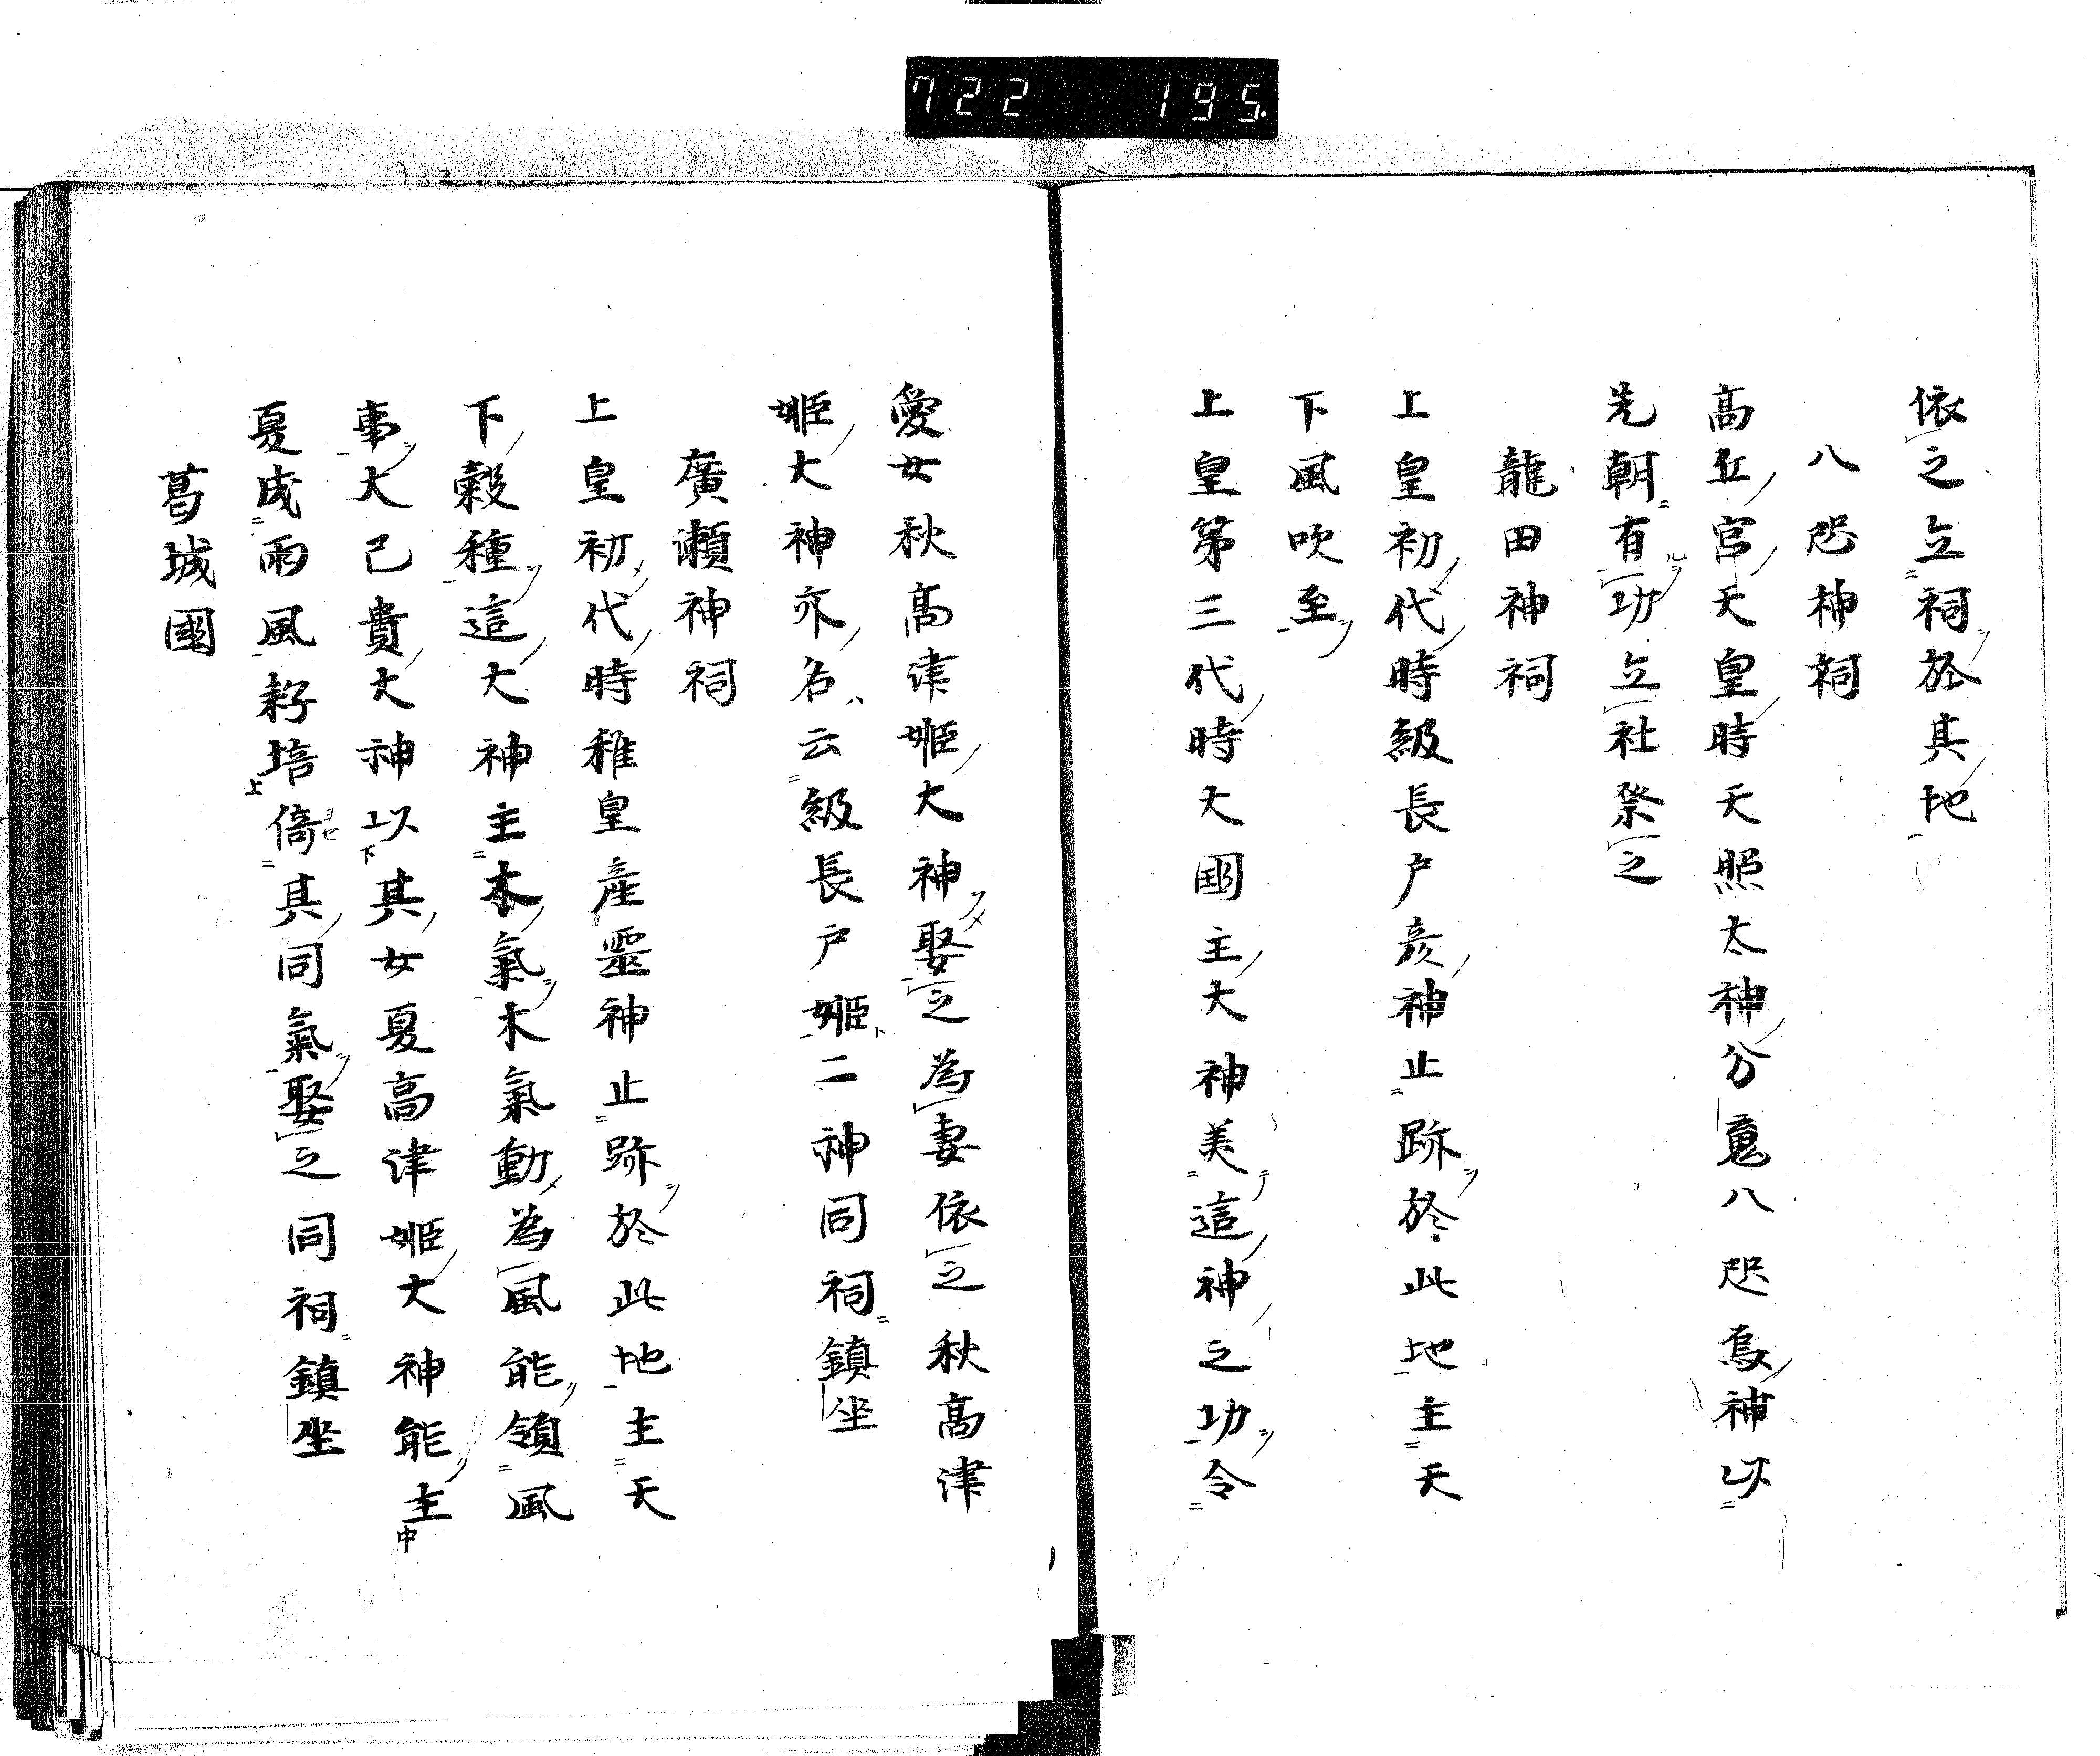 722 195.
依之立祠於其地
八咫神祠
高丘宮天皇時天照太神分 八咫烏神以
先朝有功立社祭之
龍田神祠
上皇初代時級長戸彦神止跡於此地主天
下風吹至
上皇第三代時大国主大神美這神之功令
愛女秋高津姫大神娶之為妻依之秋高津
姫大神亦名云級長戸姫二神同祠鎮坐
廣瀬神祠
上皇初代時稚皇産靈神止跡於此地主天
下穀種這大神主本氣木氣動為風能領風
事大己貴大神以其女夏高津姫大神能主
夏成雨風耔培倚其同氣娶之同祠鎮坐
葛城國